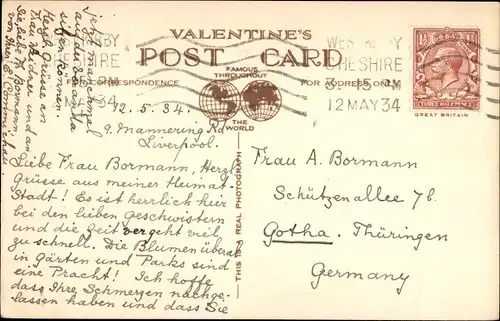 VALENTINE'S
POST CARD
FAMOUS
THROUGHOUT
THE
WORLD
FOR ADDRESS ONLY
CORRESPONDENCE
THIS IS A REAL PHOTOGRAPH
GREAT BRITAIN
THREE HALFPENCE
WEST KIRBY
CHESHIRE
3 - 15 PM
12 MAY 34
12.5.34.
9. Mannering Rd
Liverpool.
Liebe Frau Bormann, Herzl.
Grüsse aus meiner Heimat-
Stadt! Es ist herrlich hier
bei den lieben Geschwistern
und die Zeit vergeht viel
zu schnell. Die Blumen überall
in Gärten und Parks sind
eine Pracht! Ich hoffe
dass Ihre Schmerzen nachge-
lassen haben und dass Sie
jetzt manchmal
auf der
können.
Herzl. Grüsse an
Frau Weidner und an
Sie liebe Fr. Bormann
von Ihrer
Frau A. Bormann
Schützenallee 7b.
Gotha. Thüringen
Germany